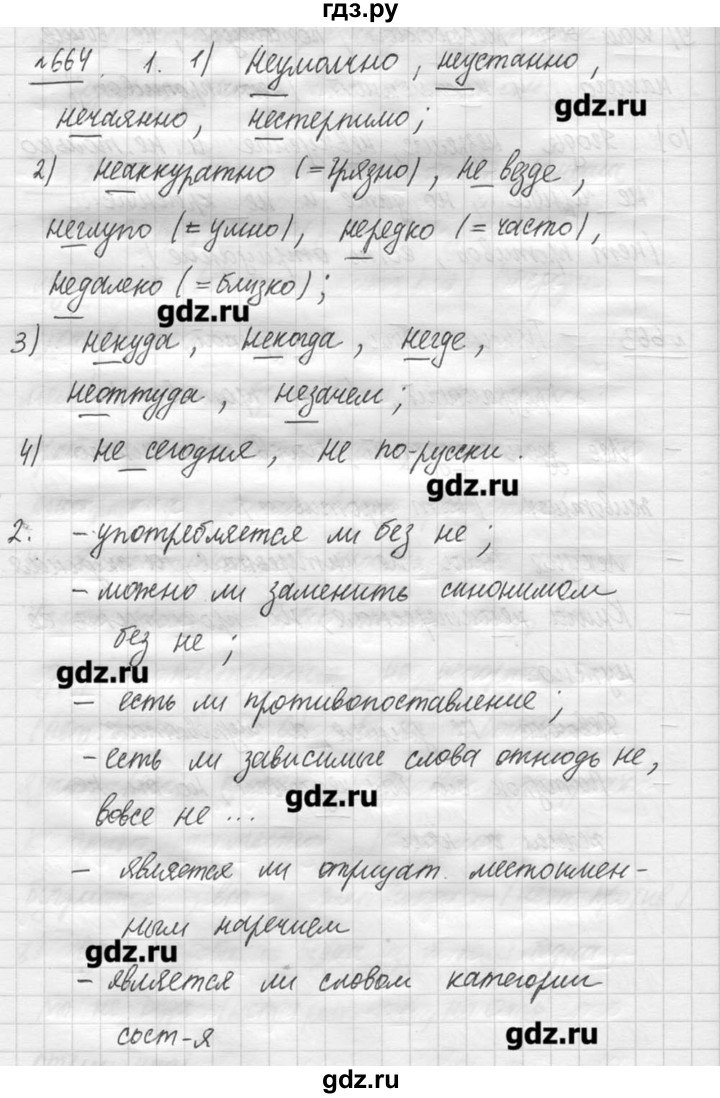 гдз.ру
№664. 1. 1) Неумолчно, неустанно,
нечаянно, нестерпимо;
gdz.ru
2) неаккуратно (=грязно), не везде,
неглупо (=умно), нередко (=часто),
недалеко (=близко);
gdz.ru
3) некуда, некогда, негде,
неоттуда, незачем;
4) не сегодня, не по-русски.
gdz.ru
2. - употребляется ли без не;
- можно ли заменить синонимом
без не;
gdz.ru
- есть ли противопоставление;
- есть ли зависимые слова отнюдь не,
вовсе не ...
gdz.ru
- является ли отрицат. местоимен-
ным наречием
gdz.ru
- является ли словом категории
сост-я
gdz.ru
gdz.ru